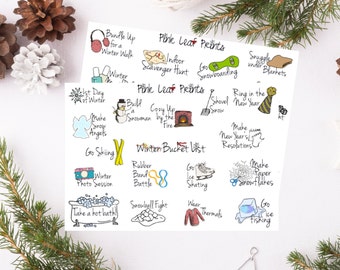 Pink Leaf Prints
Bundle Up
for a
Winter Walk
Indoor
Scavenger Hunt
Go
Snowboarding
Snuggle
under
Blankets
Pink Leaf Prints
1st Day
of Winter
Build
Snowman
Cozy Up
by the
Fire
Shovel
Snow
Ring in the
New Year
Make
Snow
Angels
Make
New Year's
Resolutions
Go Skiing
Winter Bucket List
Winter
Photo Session
Rubber
Band
Battle
Go
Ice
Skating
Make
Paper
Snowflakes
Take a hot bath!
Snowball Fight
Wear
Thermals
Go
Ice
Fishing